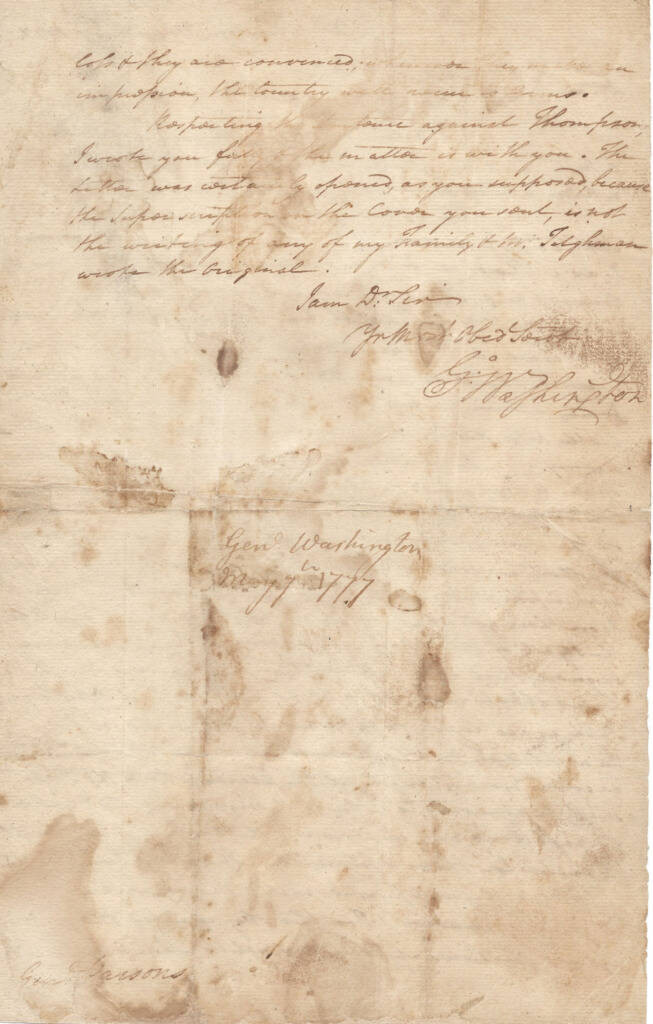 loss & they are convinced, whenever they make an
impression, the Country will
Respecting the against Thompson,
I wrote you the matter is with you. The
Letter was certainly opened, as you supposed, because
the Superscription on the Cover you sent, is not
the writing of any of my Family & Mr. Tilghman
wrote the Original.
I am Dr Sir
Yr Most Obed Servt
Go Washington
Genl Washington
May 7th 1777
Genl Parsons